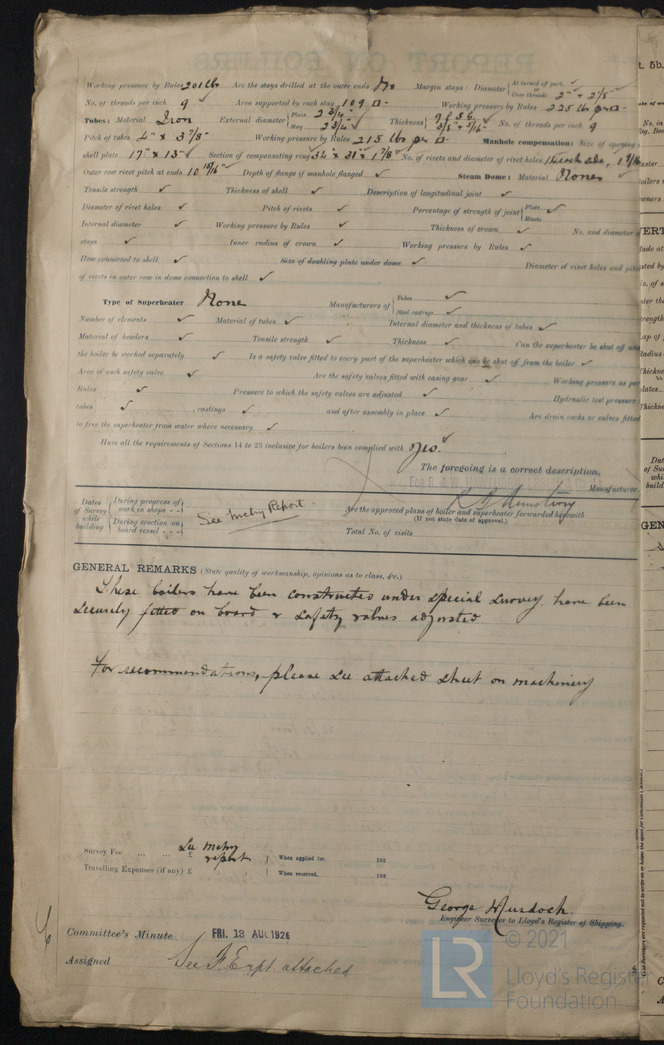 Working pressure by Rules 201 lb Are the stays drilled at the outer ends No Margin stays: Diameter { At turned off part, ✓ or Over threads 2" + 2⅞"
No. of threads per inch 9 ✓ Area supported by each stay 109 □" Working pressure by Rules 225 lb per □"
Tubes: Material Iron External diameter { Plain 2 3/4" Stay 2 3/4" Thickness { 9 & 8 G 5/16" + 3/8" No. of threads per inch 9
Pitch of tubes 4" x 3 7/8" Working pressure by Rules 215 lb per □" Manhole compensation: Size of opening
shell plate 17" x 13" Section of compensating ring No. of rivets and diameter of rivet holes
Outer row rivet pitch at ends 10 Depth of flange if manhole flanged ✓ Steam Dome: Material None
Tensile strength ✓ Thickness of shell ✓ Description of longitudinal joint ✓
Diameter of rivet holes ✓ Pitch of rivets ✓ Percentage of strength of joint { Plate Rivets
Internal diameter ✓ Working pressure by Rules ✓ Thickness of crown ✓ No. and diameter of
stays ✓ Inner radius of crown ✓ Working pressure by Rules ✓
How connected to shell ✓ Size of doubling plate under dome ✓ Diameter of rivet holes and pitch
of rivets in outer row in dome connection to shell ✓
Type of Superheater None Manufacturers of { Tubes ✓ Steel castings ✓
Number of elements ✓ Material of tubes ✓ Internal diameter and thickness of tubes ✓
Material of headers ✓ Tensile strength ✓ Thickness ✓ Can the superheater be shut off and
the boiler be worked separately ✓ Is a safety valve fitted to every part of the superheater which can be shut off from the boiler ✓
Area of each safety valve ✓ Are the safety valves fitted with easing gear ✓ Working pressure as per
Rules ✓ Pressure to which the safety valves are adjusted ✓ Hydraulic test pressure
tubes ✓ , castings ✓ and after assembly in place ✓ Are drain cocks or valves fitted
to free the superheater from water where necessary ✓
Have all the requirements of Sections 14 to 23 inclusive for boilers been complied with Yes. ✓
The foregoing is a correct description,
Manufacturer.
Armstrong
Dates of Survey while building { During progress of work in shops - - } { During erection on board vessel - - - } See mchy Report
Are the approved plans of boiler and superheater forwarded herewith
(If not state date of approval.)
Total No. of visits
GENERAL REMARKS (State quality of workmanship, opinions as to class, &c.)
These boilers have been constructed under special survey, have been
securely fitted on board & safety valves adjusted
For recommendations, please see attached sheet on machinery
Survey Fee ... ... £ See mchy report When applied for, 192
Travelling Expenses (if any) £ When received, 192
George Murdoch.
Engineer Surveyor to Lloyd's Register of Shipping.
Committee's Minute FRI. 13 AUG 1926
Assigned See F.E. rpt. attached
© 2021
LR
Lloyd's Register
Foundation